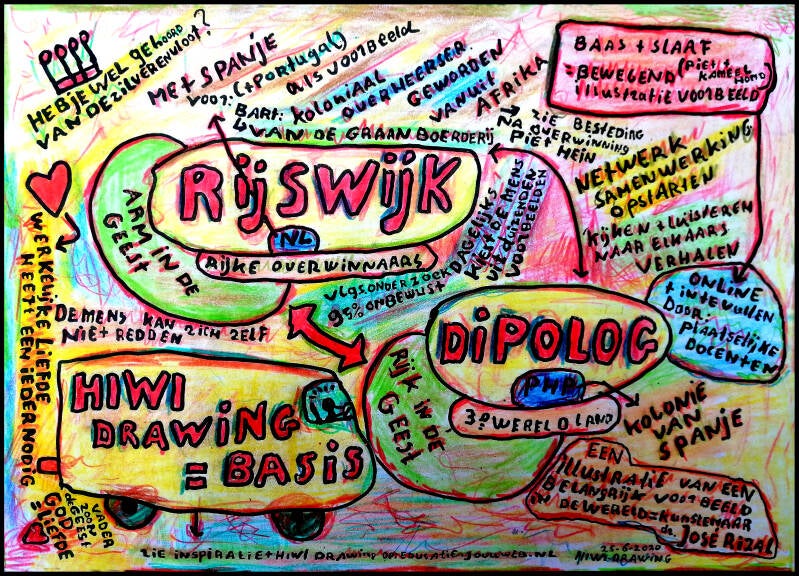 HEB JE WEL GEHOORD
VAN DE ZILVERENVLOOT?
MET SPANJE
(+PORTUGAL)
ALS VOORBEELD
KOLONIAAL
OVERHEERSER
GEWORDEN
VANUIT
AFRIKA
BART:
VAN DE GRAANBOERDERIJ
BAAS + SLAAF
= BEWEGEND (PIET +
KAMEEL
ILLUSTRATIE VOORBEELD
ZIE BESTEDING
NA OVERWINNING
PIET HEIN
NETWERK
SAMENWERKING
OPSTARTEN
KIJKEN + LUISTEREN
NAAR ELKAARS
VERHALEN
ONLINE
+ IN TE VULLEN
DOOR:
PLAATSELIJKE
DOCENTEN
ARM IN DE
GEEST
RIJSWIJK
NL
RIJKE OVERWINNAARS
DAGELIJKS
KIEST DE MENS
UIT DUIZENDEN
VOORBEELDEN
VLGS. ONDERZOEK
95% ONBEWUST
DE MENS KAN ZICH ZELF
NIET REDDEN
WERKELIJKE LIEFDE
HEEFT EEN IEDER NODIG
GOD
= LIEFDE
VADER
ZOON
GEEST
HIWI
DRAWING
= BASIS
RIJK IN DE
GEEST
DIPOLOG
PHP
3e WERELDLAND
KOLONIE
VAN
SPANJE
EEN
ILLUSTRATIE VAN EEN
BELANGRIJK VOORBEELD
IN DE WERELD = KUNSTENAAR
dr. JOSÉ RIZAL
ZIE INSPIRATIE + HIWI DRAWING
25-6-2020
HIWI-DRAWING